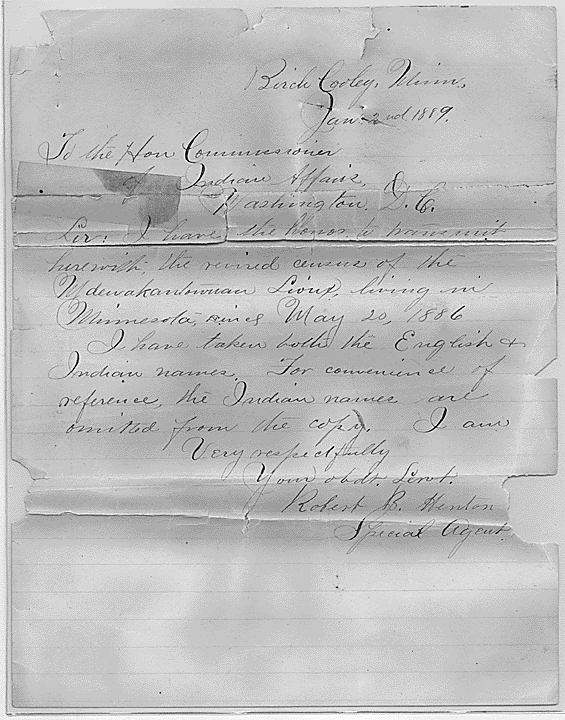 Birch Cooley, Minn,
Jan. 2nd 1889.
To the Hon Commissioner
of Indian Affairs,
Washington, D. C.
Sir: I have the honor to transmit
herewith, the revised census of the
Mdewakantowuan Sioux, living in
Minnesota, since May 20, 1886
I have taken both the English &
Indian names. For convenience of
reference, the Indian names are
omitted from the copy. I am
Very respectfully
Your obdt. Servt.
Robert B. Henton
Special Agent.